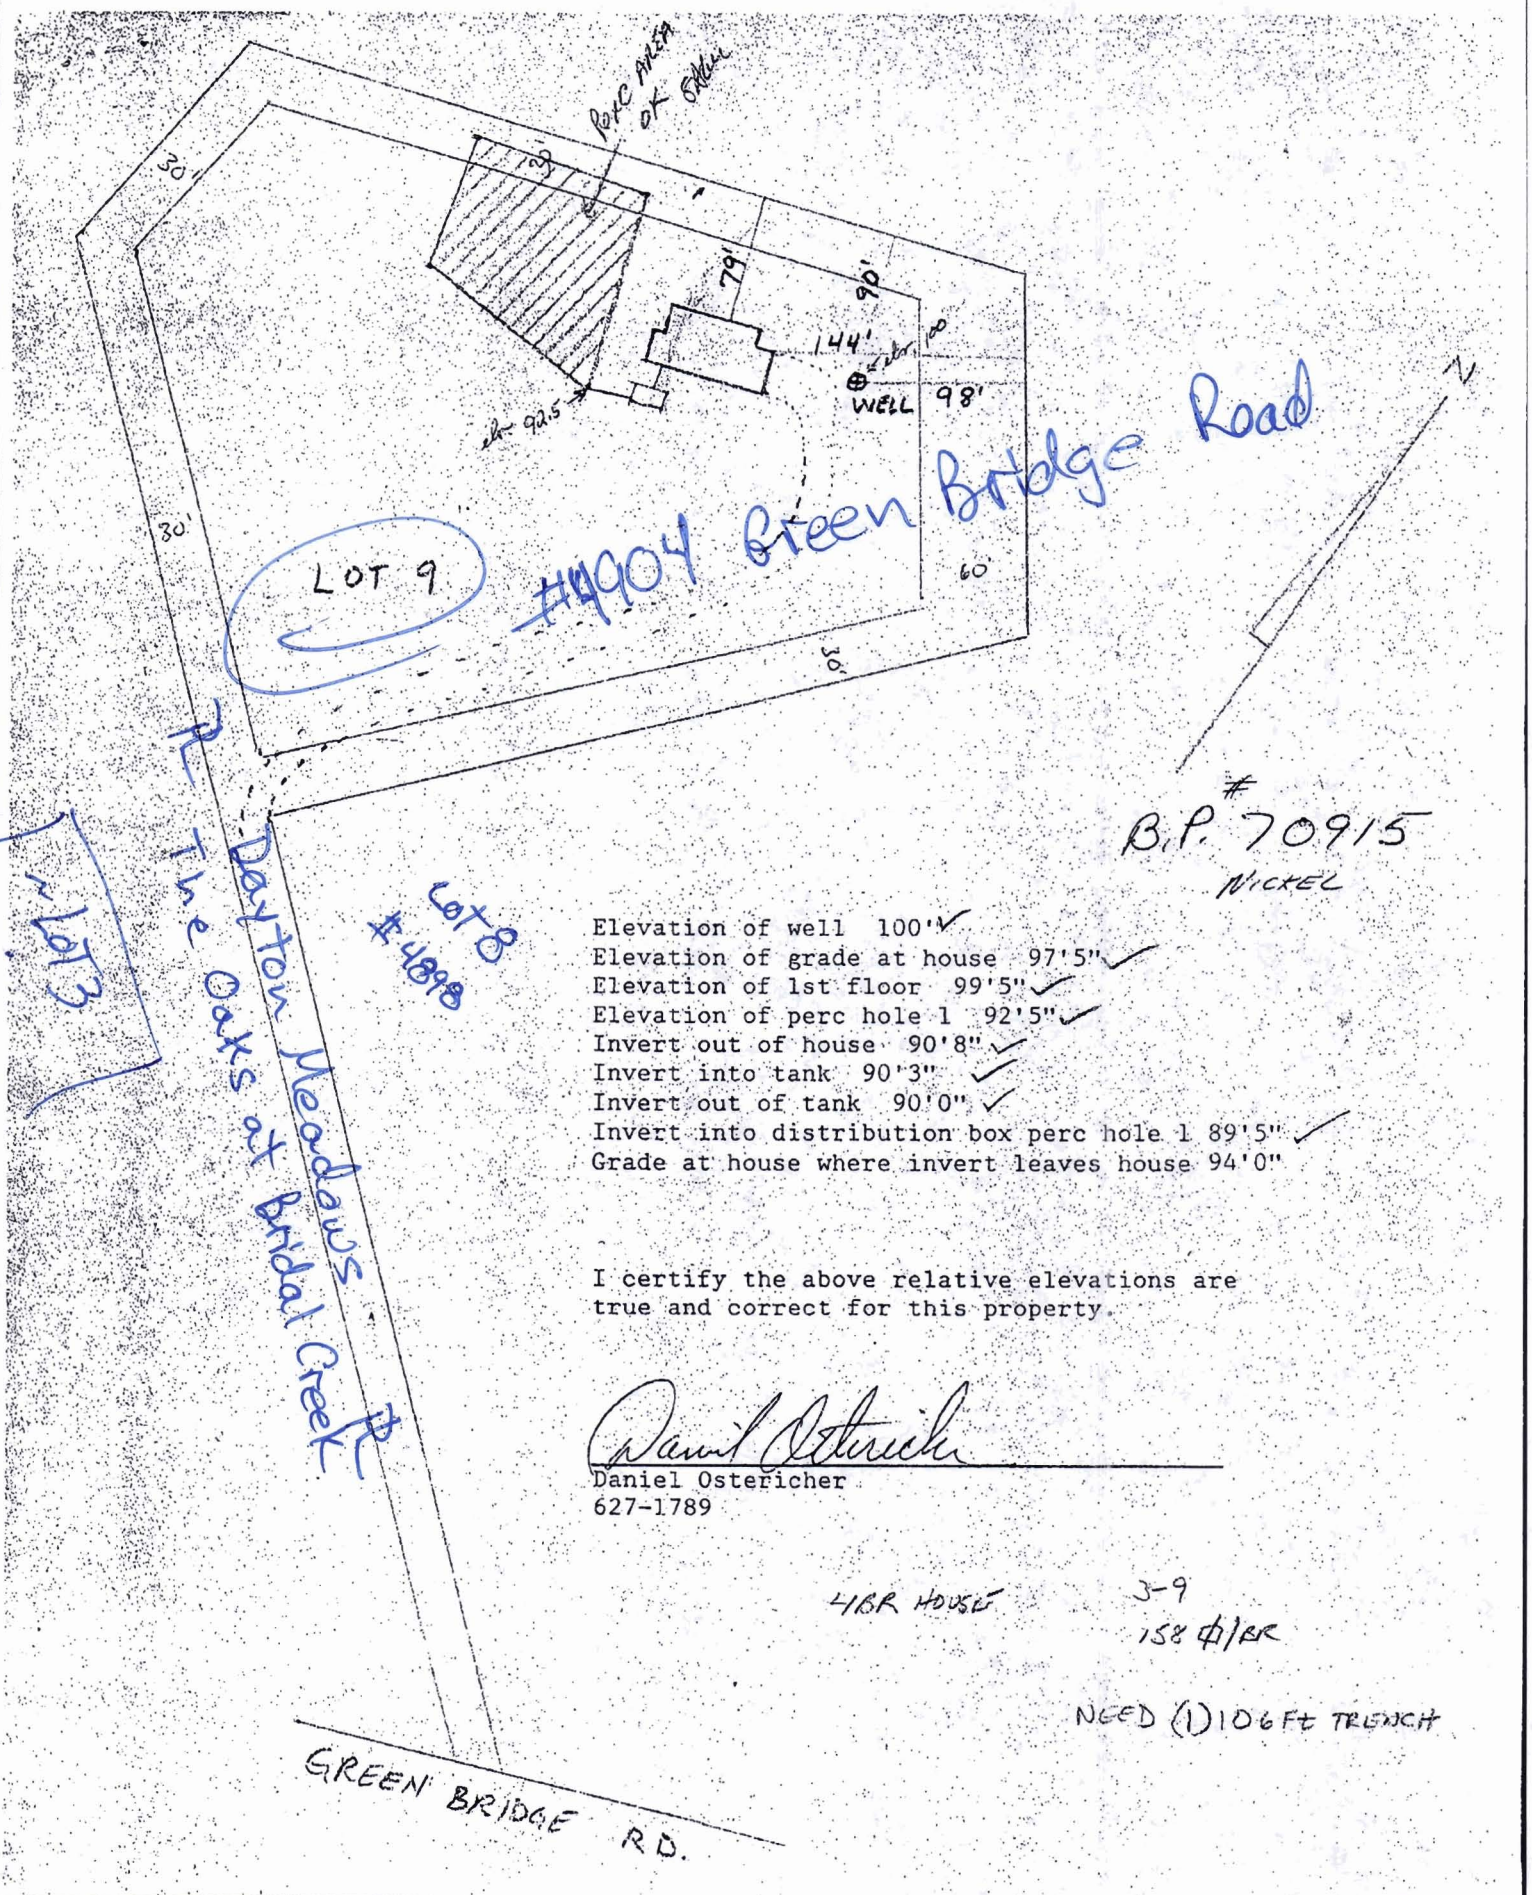 PERC AREA
OK
30'
79'
90'
144'
elv. 100
WELL 98'
elv 92.5
N
30'
LOT 9
#4904 Green Bridge Road
60'
30'
B.P. # 70915
NICKEL
~ LOT 3
The Oaks at Bridal Creek
Dayton Meadows
Lot 8
#4898
Elevation of well 100'
Elevation of grade at house 97'5"
Elevation of 1st floor 99'5"
Elevation of perc hole 1 92'5"
Invert out of house 90'8"
Invert into tank 90'3"
Invert out of tank 90'0"
Invert into distribution box perc hole 1 89'5"
Grade at house where invert leaves house 94'0"
I certify the above relative elevations are
true and correct for this property.
Daniel Ostericher
Daniel Ostericher
627-1789
4BR HOUSE
3-9
158 ⏀/BR
NEED (1) 106 Ft TRENCH
GREEN BRIDGE RD.